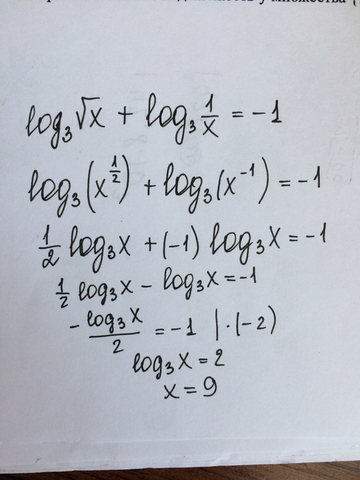 log₃√x + log₃ 1/x = -1
log₃(x^(1/2)) + log₃(x⁻¹) = -1
1/2 log₃x + (-1) log₃x = -1
1/2 log₃x - log₃x = -1
- log₃x/2 = -1 | · (-2)
log₃x = 2
x = 9